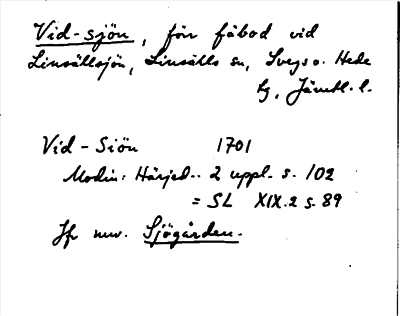 Vid-sjön, förr fäbod vid
Linsällsjön, Linsälls sn, Svegs o. Hede
tg, Jämtl. l.
Vid-Siön 1701
Modin: Härjed.. 2 uppl. s. 102
= SL XIX.2 s. 89
Jfr nuv. Sjögården.